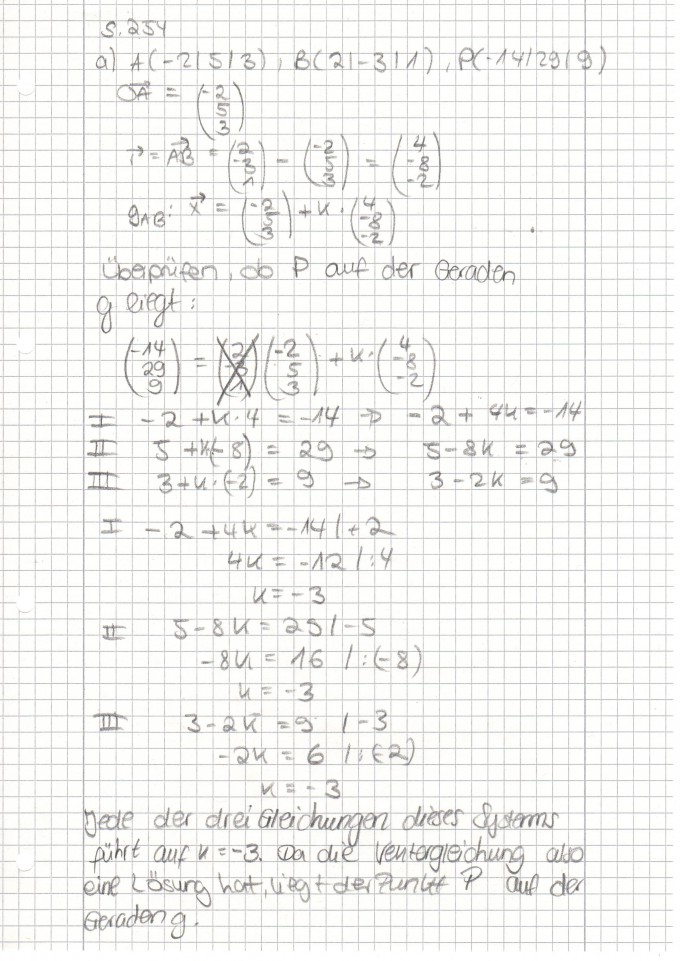 S. 254
a) A(-2|5|3), B(2|-3|1), P(-14|29|9)
OA⃗ = (-2 5 3)
r⃗ = AB⃗ = (2 -3 1) - (-2 5 3) = (4 -8 -2)
gAB: x⃗ = (-2 5 3) + k · (4 -8 -2)
Überprüfen, ob P auf der Geraden
g liegt:
(-14 29 9) = (-2 5 3) + k · (4 -8 -2)
I -2 + k · 4 = -14 → -2 + 4k = -14
II 5 + k(-8) = 29 → 5 - 8k = 29
III 3 + k · (-2) = 9 → 3 - 2k = 9
I -2 + 4k = -14 | +2
4k = -12 | :4
k = -3
II 5 - 8k = 25 | -5
-8k = 16 | :(-8)
k = -3
III 3 - 2k = 9 | -3
-2k = 6 | :(-2)
k = -3
Jede der drei Gleichungen dieses Systems
führt auf k = -3. Da die Vektorgleichung also
eine Lösung hat, liegt der Punkt P auf der
Geraden g.